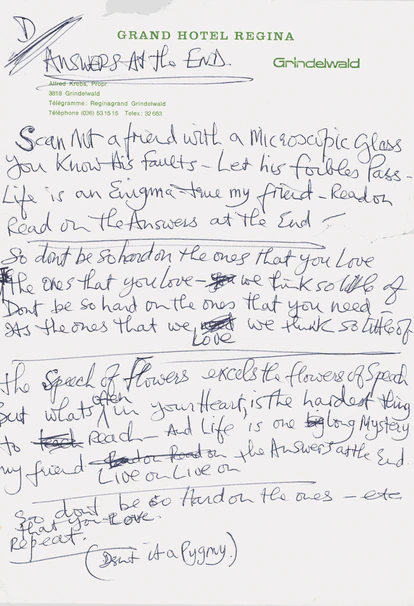 D
GRAND HOTEL REGINA
Answers At the End.
Grindelwald
Alfred Krebs, Propr.
3818 Grindelwald
Télégramme: Reginagrand Grindelwald
Téléphone (036) 53 15 15 Telex: 32 663
Scan Not a friend with a Microscopic Glass
You Know his faults - Let his foibles Pass -
Life is an Enigma true my friend - Read on
Read on the Answers at the End -
So dont be so hard on the ones that you Love
The ones that you Love - we think so little of
Dont be so hard on the ones that you need
Its the ones that we we think so little of
Love
the Speech of flowers excels the flowers of Speech
often
But whats in your Heart, is the hardest thing
to Reach - And Life is one long Mystery
my friend - Read on Read on the Answers at the End.
Live on Live on
So dont be so Hard on the ones - etc
that you Love.
Repeat.
(Dsnt it a Pygmy.)